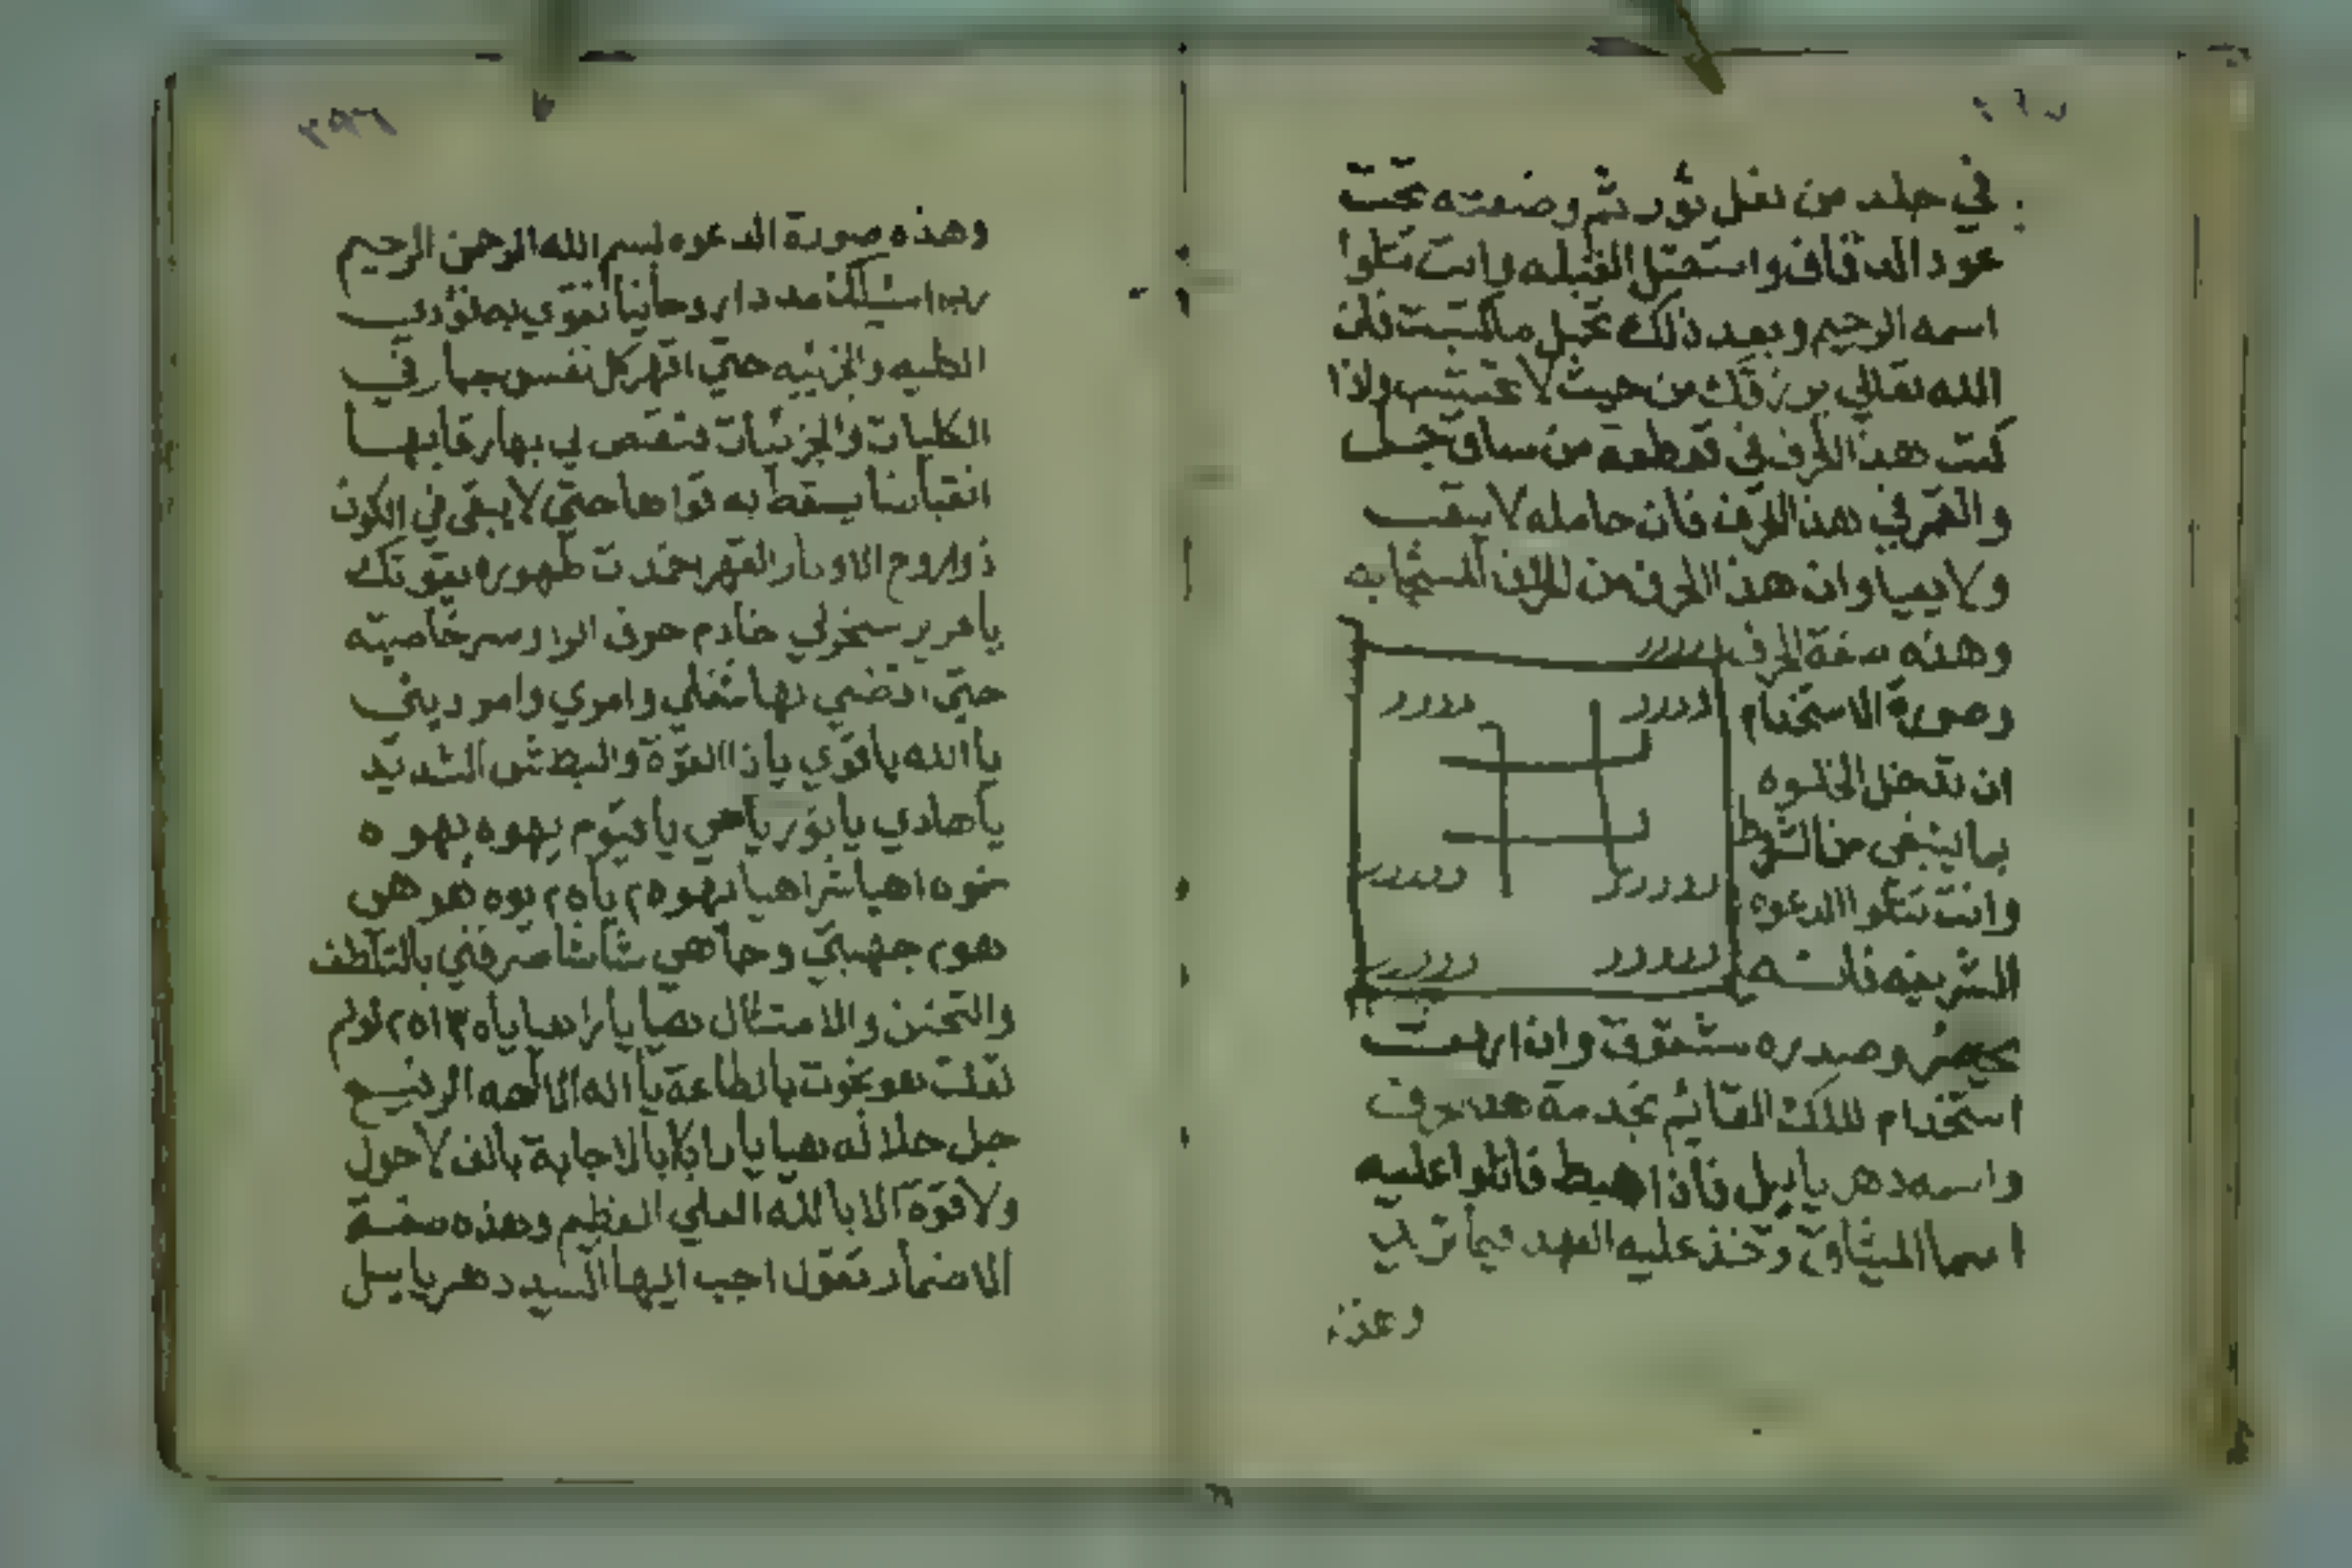 في جلد من نعل ثور ثم وضعته تحت
عود الدقاق واستقبل القبله وانت تتلوا
اسمه الرحيم وبعد ذلك تحمل ما كتبت فان
الله تعالي يرزقك من حيث لا تحتسب واذا
كتبت هذا الحرف في قطعة من ساق جمل
والقمر في هذا الحرف فان حامله لا يتعب
ولا يعيا وان هذا الحرف من الحروف المستجابه
وهذه صفة الحرف ررررر
وصورة الاستخدام
ررررر ررررر
ان تدخل الخلوه
بما ينبغي من الشروط
وانت تتلوا الدعوه
ررررر ررررر
الشريفه فانه
ررررر ررررر
يحضر وصدره مشقوق واذا اردت
استخدام الملك القائم بخدمة هذا حرف
واسمه دهريابيل فاذا هبط فاتلوا عليه
اسما الميثاق وخذ عليه العهد فيما تريد
وهذه
٢٩٦
وهذه صورة الدعوه بسم الله الرحمن الرحيم
رب اسئلك مددا روحانيا تقوي به قوي
الكليه والجزئيه حتي اقهر كل نفس بها رقي
الكليات والجزئيات فتقبض لي بها رقابها
انقباضا يسقط به قواها حتي لا يبقي في الكون
ذو روح الا و نار القهر اخمدت ظهوره بقوتك
يا عزيز سخر لي خادم حرف الرا وسر خاصيته
حتي اقضي بها شغلي وامري وامر ديني
يا الله يا قوي يا ذا القوة والبطش الشديد
يا هادي يا نور يا حي يا قيوم يهوه يهوه
اهيا شراهيا يهوه ٢ ياه ٢ يوه هو هي
جهبتي وجاهي شاشا صرفني بالتلطف
والتحنن والامتثال هيا يا را هيا ياه
بالطاعة يا الله الاله الرفيع
جل جلاله هيا يا را بالاجابة بالف لا حول
ولا قوة الا بالله العلي العظيم وهذه صفة
الاضمار تقول اجب ايها السيد دهريابيل